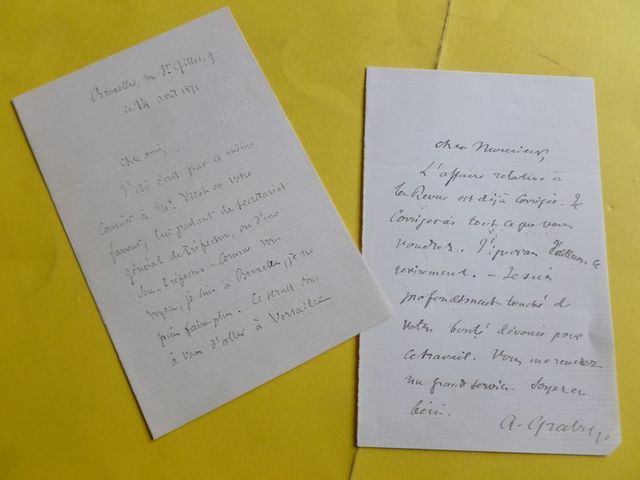 Bruxelles, rue St. Gilles, 9
ce 24 avril 1871
cher ami,
J'ai écrit par ce même
Courrier à Mr. Vitet en votre
faveur, lui parlant de secrétariat
général de Préfecture, ou d'une
Sous-Préfecture. Comme vous
voyez, je suis à Bruxelles, je ne
puis faire plus. Ce serait donc
à vous d'aller à Versailles
cher Monsieur,
L'affaire relative à
la Revue est déjà Corrigée. Je
Corrigerai tout ce que vous
voudrez. J'ignorais d'ailleurs ce
revirement. – Je suis
profondément touché de
votre bonté dévouée pour
ce travail. Vous me rendez
un grand service. Soyez en
béni.
A. Gratry